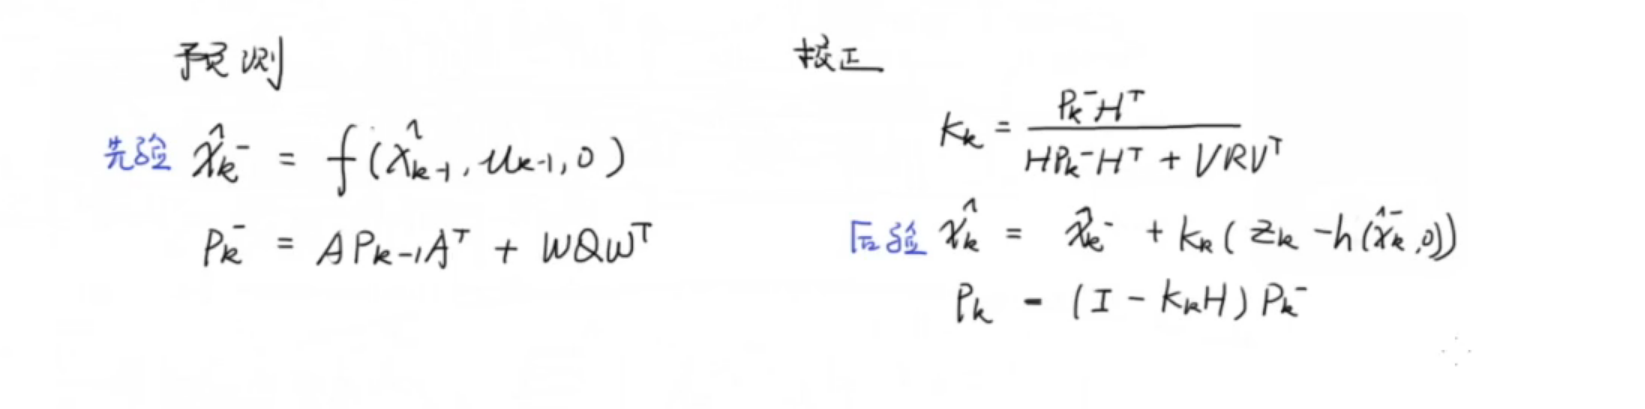 预测
先验 x̂ₖ⁻ = f(x̂ₖ₋₁, uₖ₋₁, 0)
Pₖ⁻ = APₖ₋₁Aᵀ + WQWᵀ
校正
Kₖ = Pₖ⁻Hᵀ / (HPₖ⁻Hᵀ + VRVᵀ)
后验 x̂ₖ = x̂ₖ⁻ + Kₖ(zₖ - h(x̂ₖ⁻, 0))
Pₖ = (I - KₖH)Pₖ⁻